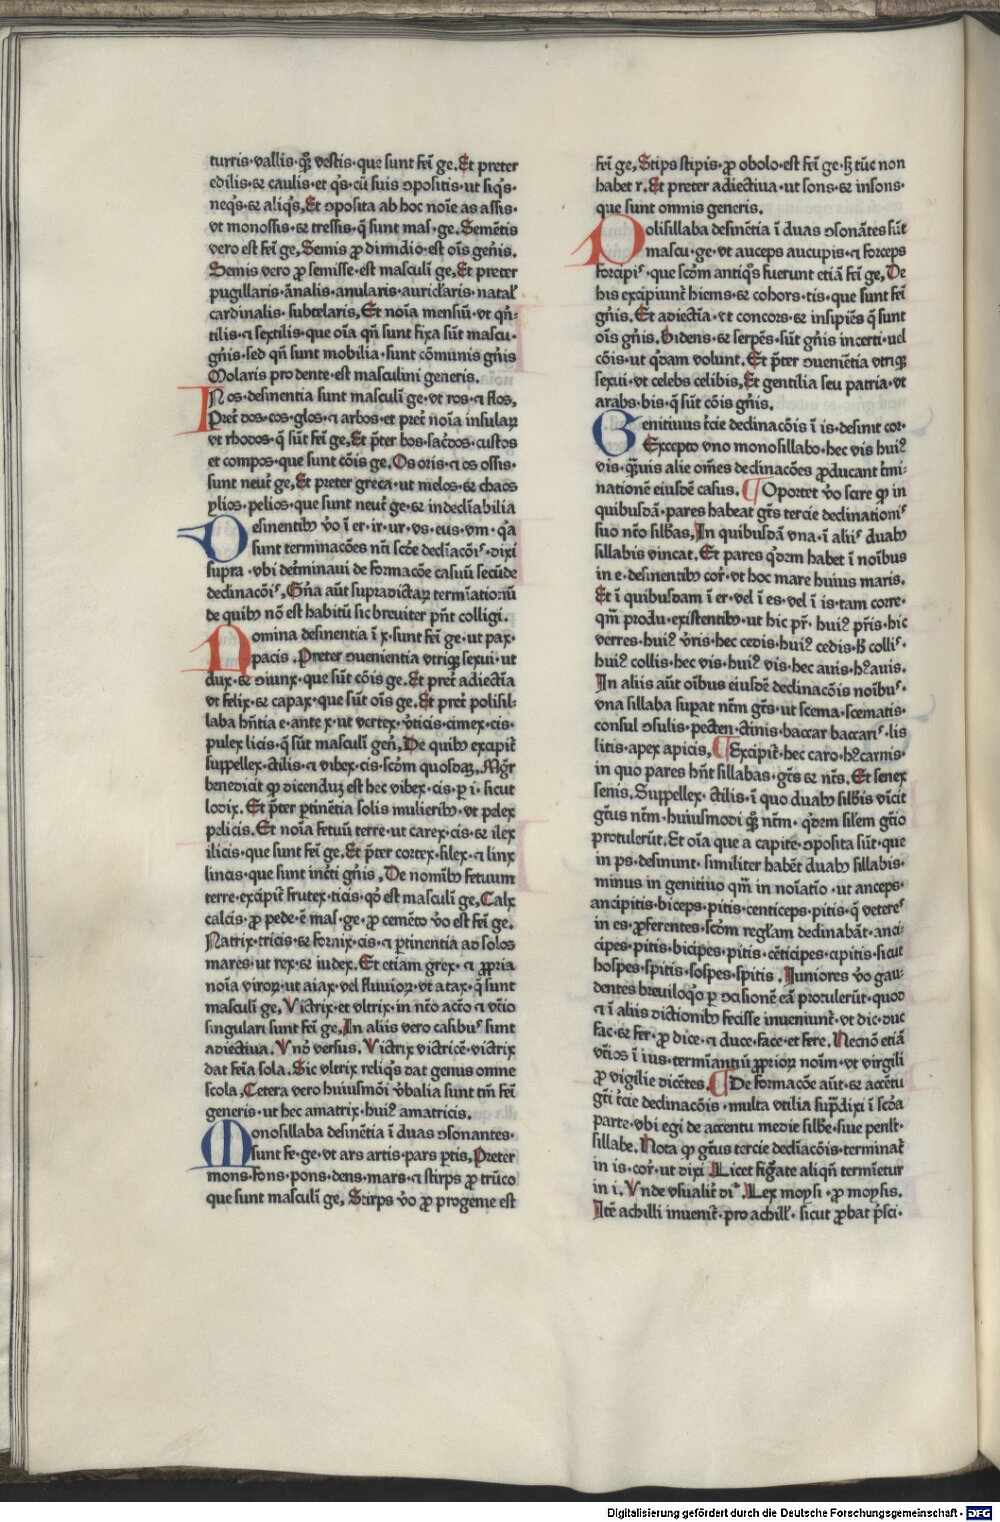 turris·vallis·qͫ vestis·que sunt feī ge. Et preter
edilis·⁊ caulis·et q̄s·cū suis ↄpositis·ut siq̄s·
neq̄s·⁊ aliq̄s, Et ↄposita ab hoc noīe as assis·
vt monossis·⁊ tressis·q̄ sunt mas·ge. Semētis
vero est feī ge, Semis ꝓ dimidio·est oīs gen̄is.
Semis vero ꝓ semisse·est masculī ge, Et preter
pugillaris·ānalis·anularis·auricl̄aris·natal̄
cardinalis·subtelaris, Et noīa mensiū·vt qn̄-
tilis·⁊ sextilis·que oīa qn̄ sunt fixa sūt mascu·
gn̄is·sed qn̄ sunt mobilia·sunt cōmunis gn̄is
Molaris pro dente·est masculini generis.
In os·desinentia sunt masculī ge·vt ros·⁊ flos,
Pret̄ dos·cos·glos·⁊ arbos·et pret̄ noīa insulaꝝ
vt rhodos·q̄ sūt feī ge, Et p̄ter bos·sac̄dos·custos
et compos·que sunt cōis ge. Os oris·⁊ os ossis·
sunt neut̄ ge, Et preter greca·ut melos·⁊ chaos
ylios·pelios·que sunt neut̄ ge·⁊ indecl̄iabilia
Desinentibꝰ v̊o ī er·ir·ur·us·eus·um·q̄a
sunt terminacōes nr̄i scd̄e decl̄iacōīs·dixi
supra·vbi det̄minaui de formacōe casuū secūde
declinacōīs, Gn̄a aūt supradictaꝝ termīationū
de quibꝰ nō est habitū sic breuiter pn̄t colligi.
Nomina desinentia ī x·sunt feī ge·ut pax·
pacis. Preter ↄuenientia vtriqꝫ sexui·ut
dux·⁊ ↄiunx·que sūt cōis ge. Et pret̄ adiectīa
vt felix·⁊ capax·que sūt oīs ge. Et pret̄ polisil-
laba hn̄tia e·ante x·ut vertex·v̓ticis·cimex·cis·
pulex licis·q̄ sūt masculī gen̄, De quibꝰ excipit̄
suppellex·ctilis·⁊ vibex·cis·scd̄m quosdaꝫ, Mgr̄
benedicit qꝫ dicenduꝫ est hec vibex·cis·p i·sicut
lodix. Et p̄ter ꝑtinētia solis mulieribꝰ·vt pelex
pelicis. Et noīa fetuū terre·ut carex·cis·⁊ ilex
ilicis·que sunt feī ge. Et p̄ter cortex·silex·⁊ linx
lincis·que sunt inc̄ti gn̄is, De nomībꝰ fetuum
terre·excipit̄ frutex·ticis·qd̓ est masculī ge, Calx
calcis·ꝓ pede·ē mas·ge·ꝓ cemēto v̊o est feī ge.
Natrix·tricis·⁊ fornix·cis·⁊ ꝑtinentia ad solos
mares·ut rex·⁊ iudex. Et etiam grex·⁊ ꝓpria
noīa viroꝝ·ut aiax·vel fluuioꝝ·vt atax·q̄ sunt
masculī ge, Victrix·et vltrix·in nt̄o actō·⁊ vc̄io
singulari sunt feī ge, In aliis vero casibus sunt
adiectiua. Vnd̓ versus. Victrix victricē·victrix
dat feīa sola. Sic vltrix reliq̄s dat genus omne
scola, Cetera vero huiusmōi v̓balia sunt tm̄ feī
generis·ut hec amatrix·huiꝰ amatricis.
Monosillaba desinētia ī duas ↄsonantes·
sunt fe·ge·vt ars artis·pars ꝑtis, Preter
mons·fons·pons·dens·mars·⁊ stirps ꝓ trūco
que sunt masculī ge, Stirps v̊o ꝓ progenie est
feī ge, Stips stipis·ꝓ obolo·est feī ge·ꝫ tūc non
habet r. Et preter adiectiua·ut sons·⁊ insons·
que sunt omnis generis.
Polisillaba desinētia ī duas ↄsonātes sūt
mascu·ge·vt auceps aucupis·⁊ forceps
forcipis·que scd̄m antiq̄s fuerunt etiā feī ge, De
his excipiunt̄ hiems·⁊ cohors·tis·que sunt feī
gn̄is. Et adiectīa·vt concors·⁊ insipiēs q̄ sunt
oīs gn̄is. Bidens·⁊ serpēs·sūt gn̄is incerti·uel
cōis·ut qd̓am volunt. Et p̄ter ↄueniētia vtriqꝫ
sexui·vt celebs celibis, Et gentilia seu patria·vt
arabs·bis·q̄ sūt cōis gn̄is.
Genitiuus t̄cie declinacōis ī is·desinit cor·
Excepto vno monosillabo·hec vis huiꝰ
vis·q̄muis alie om̄es declinacōes ꝓducant t̄mi-
nationē eiusdē casus. ¶ Oportet v̊o scire qꝫ in
quibusdā·pares habeat gt̄s tercie declinationis
suo nt̄o sill̄bas, In quibusdā vna·ī aliis duabꝰ
sillabis vincat. Et pares qd̓em habet ī noībus
in e·desinentibꝰ cor̄·vt hoc mare huius maris.
Et ī quibusdam ī er·vel ī es·vel ī is·tam corre·
qm̄ produ·existentibꝰ·ut hic pr̄·huiꝰ pr̄is·hic
verres·huiꝰ v̄ris·hec cedis·huiꝰ cedis·h̓ collis·
huiꝰ collis·hec vis·huiꝰ vis·hec auis·hꝰ auis.
In aliis aūt oībus eiusdē declinacōis noībus·
vna sillaba suꝑat ntm̄ gt̄s·ut scema·scematis·
consul ↄsulis·pecten·ctinis·baccar baccaris·lis
litis·apex apicis, ¶ Excipit̄·hec caro·hꝰ carnis·
in quo pares hn̄t sillabas·gt̄s ⁊ nt̄s. Et senex
senis. Suppellex·ctilis·ī quo duabꝰ sill̄bis vīcit
gt̄us ntm̄·huiusmodi qͫ ntm̄·qd̓em sil̄em gt̄io
protulerūt. Et oīa que a capite·ↄposita sūt·que
in ps·desinunt·similiter habēt duabꝰ sillabis·
minus in genitiuo qm̄ in noīatio·ut anceps·
ancipitis·biceps·pitis·centiceps·pitis·q̄ veteres
in es·ꝓferentes·scd̄m regl̄am declinabāt·anci-
cipes·pitis·bicipes·pitis·cēticipes·cipitis·sicut
hospes·spitis·sospes·spitis. Iuniores v̊o gau-
dentes breuiloq̊o ꝑ ↄcisionē eā protulerūt·quod
⁊ ī aliis dictionibꝰ fecisse inueniunt̄·vt dic·duc
fac·⁊ fer·ꝓ dice·⁊ duce·face·et fere. Necnō etiā
vt̄ios ī ius·termīantiū ꝓprioꝝ noīm·vt virgili
ꝓ vigilie dicētes. ¶ De formacōe aūt·⁊ accētu
gt̄i t̄cie declinacōis·multa vtilia sup̄dixi ī scd̄a
parte·vbi egi de accentu medie sill̄be·siue penl̄t·
sillabe. Nota qꝫ gt̄us tercie declīacōis·terminat̄
in is·cor̄·ut dixi. Licet figīate aliqn̄ termīetur
in i. Vnde vsualit̄ dī. Lex moysi·ꝓ moysis.
Itē achilli inuenit̄·pro achill̄·sicut ꝓbat p̄sci·
Digitalisierung gefördert durch die Deutsche Forschungsgemeinschaft - DFG